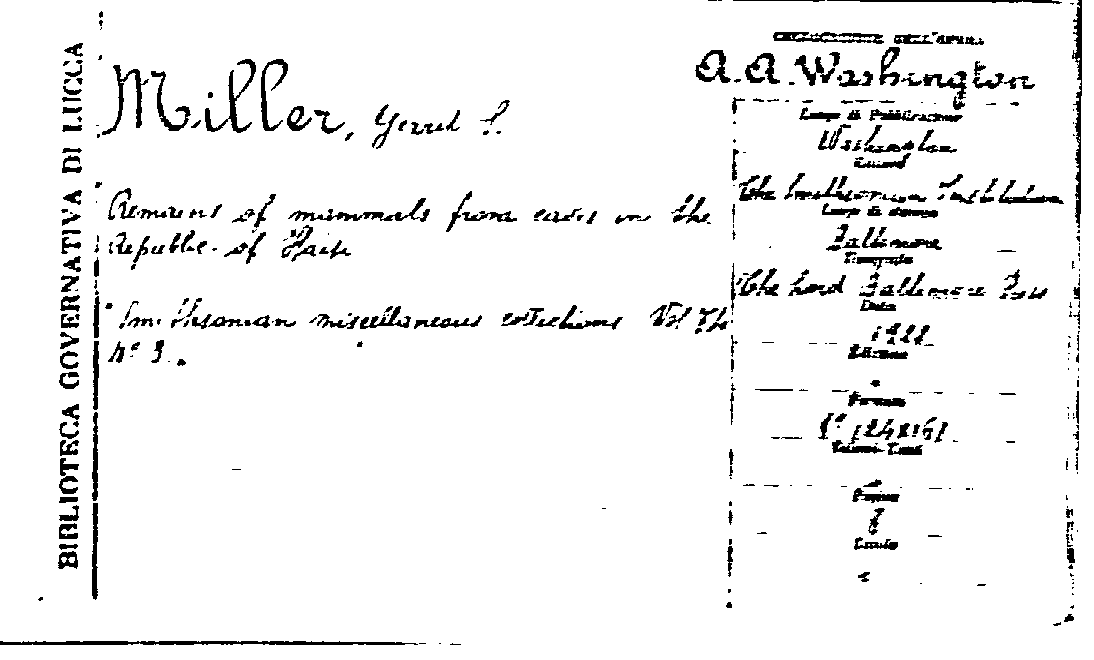 BIBLIOTECA GOVERNATIVA DI LUCCA
Miller, Gerrit S.
Remains of mammals from caves in the
Republic of Haiti
Smithsonian miscellaneous collections Vol 74
n° 3.
COLLOCAZIONE DELL'OPERA
A.A. Washington
Luogo di Pubblicazione
Washington
Editore
The Smithsonian Institution
Luogo di stampa
Baltimore
Tipografo
The Lord Baltimore Press
Data
Edizione
Formato
8° (24x16)
Volumi-Tomi
Pagine
8